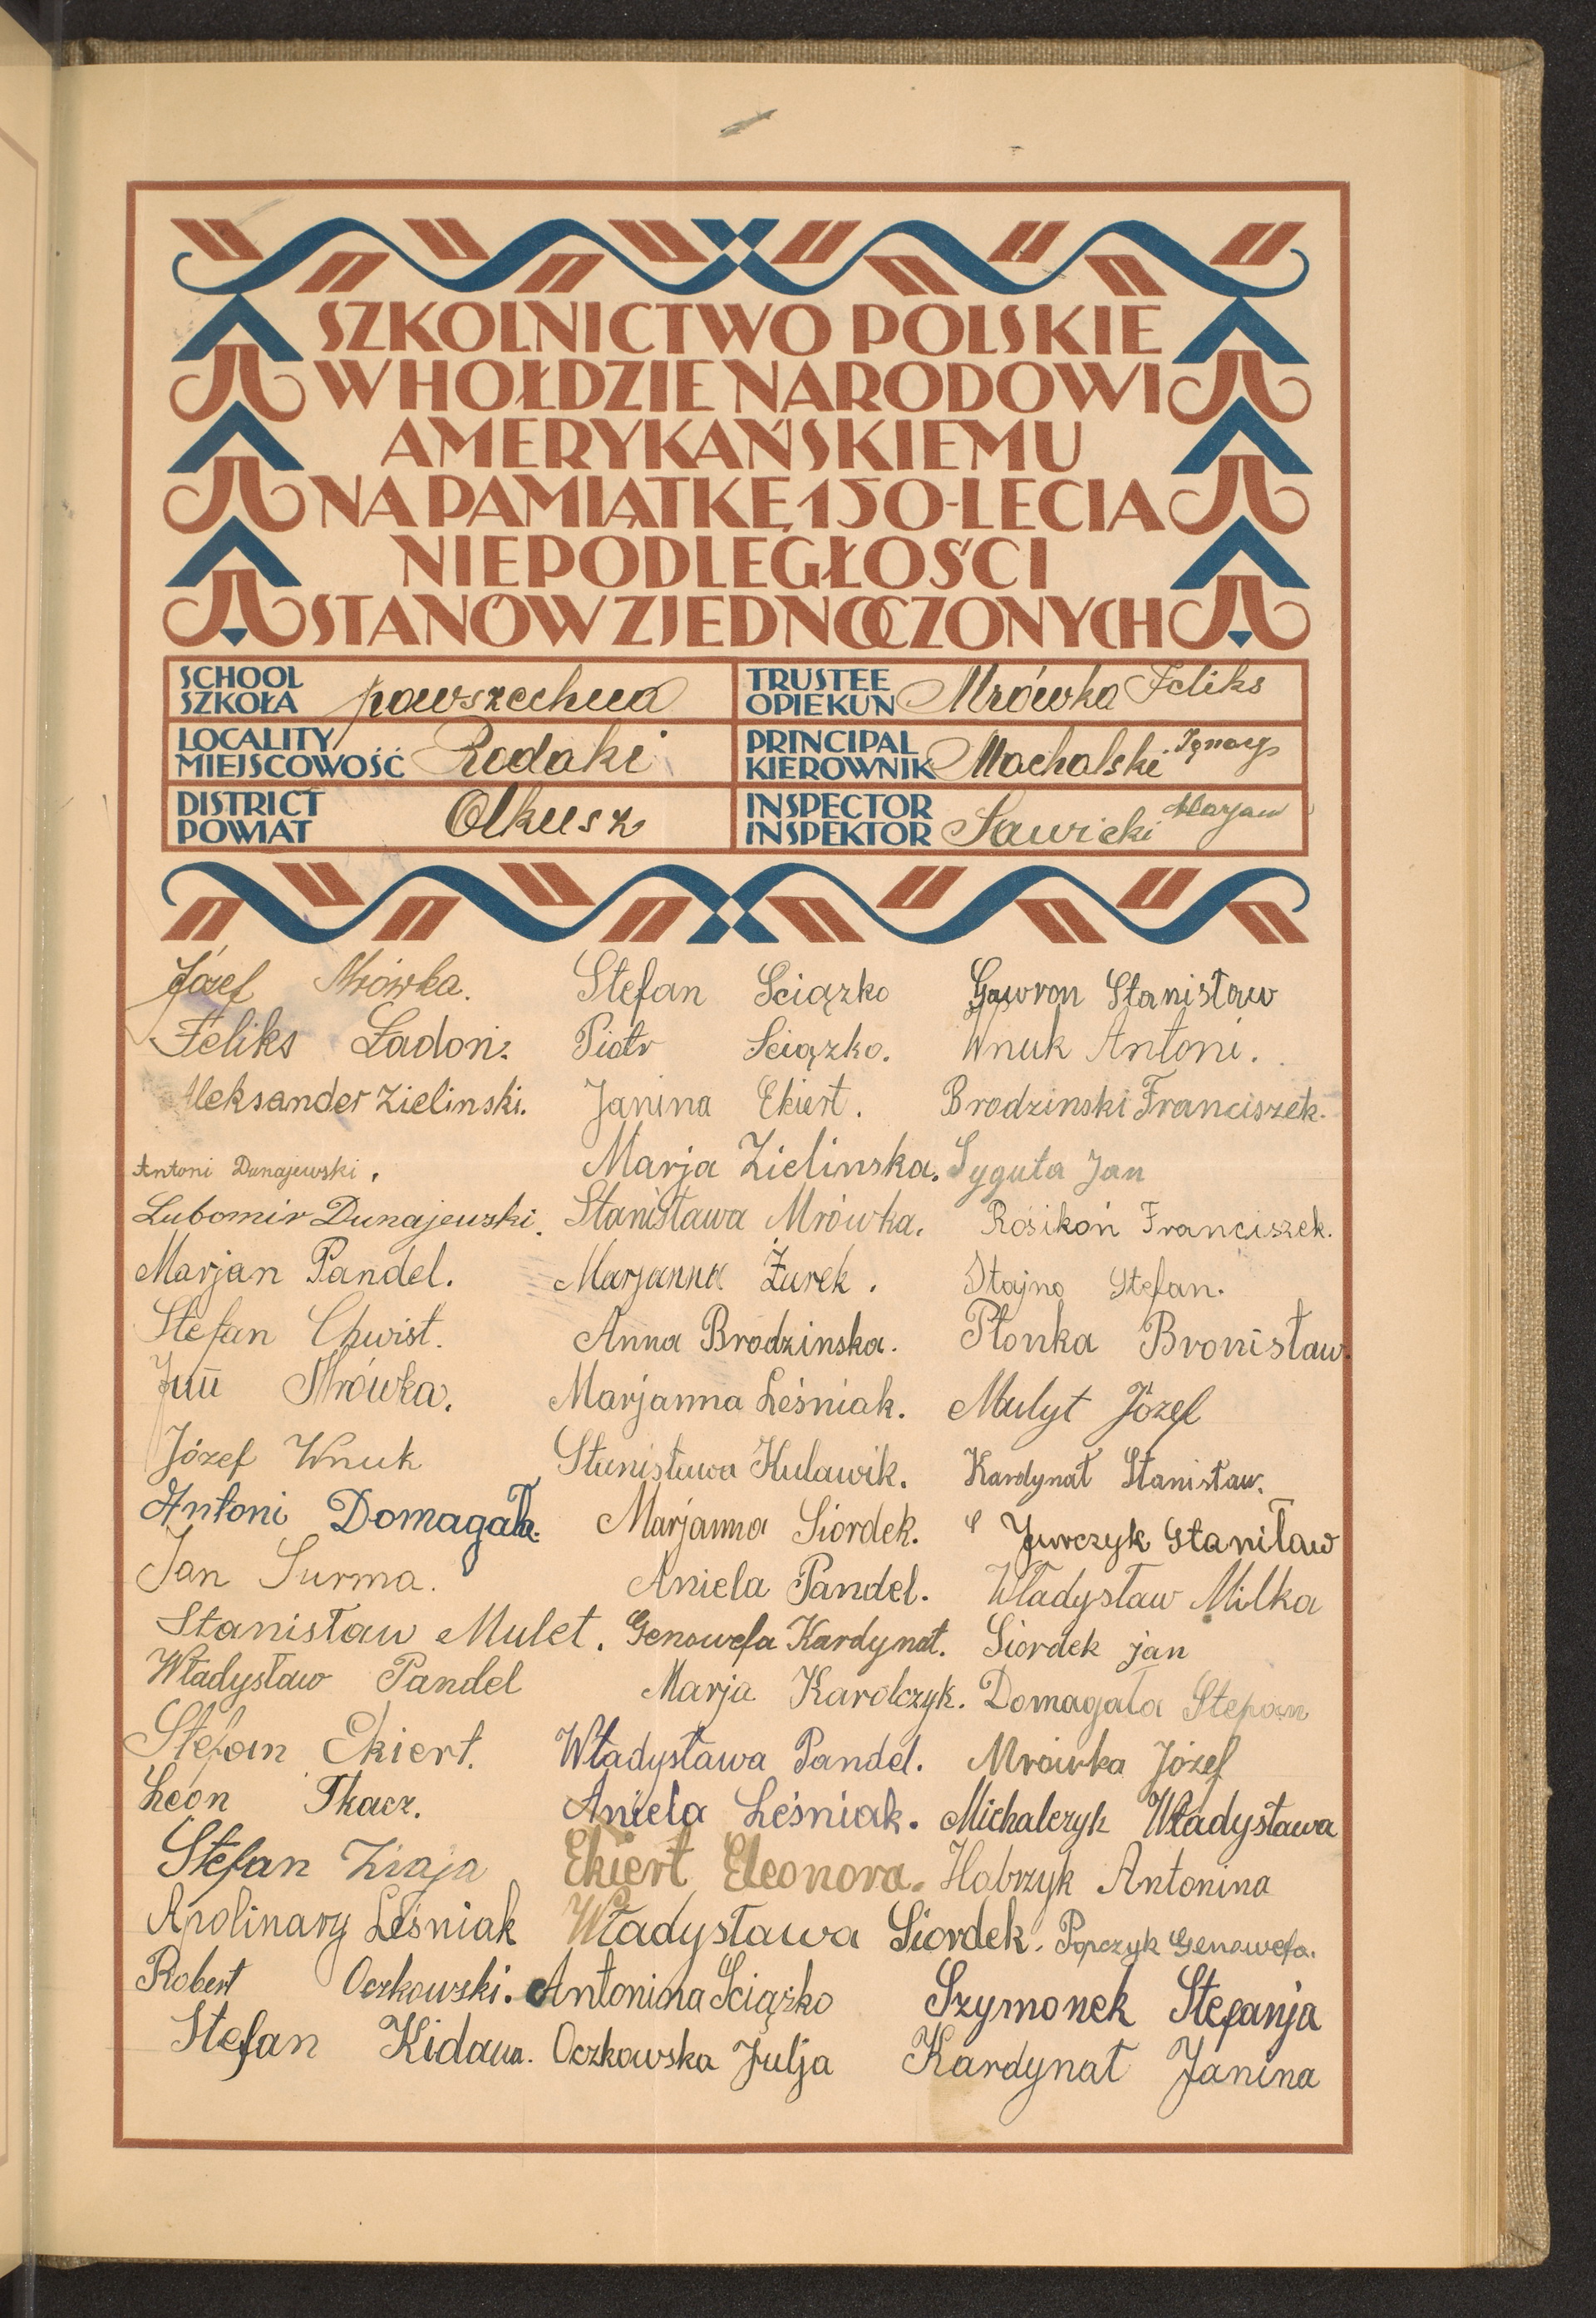 SZKOLNICTWO POLSKIE
W HOŁDZIE NARODOWI
AMERYKAŃSKIEMU
NA PAMIĄTKĘ 150-LECIA
NIEPODLEGŁOŚCI
STANÓW ZJEDNOCZONYCH
SCHOOL
SZKOŁA powszechna
TRUSTEE
OPIEKUN Mrówka Feliks
LOCALITY
MIEJSCOWOŚĆ Rodaki
PRINCIPAL
KIEROWNIK Machalski Ignacy
DISTRICT
POWIAT Olkusz
INSPECTOR
INSPEKTOR Sawicki Marjan
Józef Mrówka.
Feliks Ładoń.
Aleksander Zielinski.
Antoni Dunajewski.
Lubomir Dunajewski.
Marjan Pandel.
Stefan Chwist.
Mrówka.
Józef Wnuk
Antoni Domagała.
Jan Surma.
Stanisław Mulet.
Władysław Pandel
Stefan Ekiert.
Leon Tkacz.
Stefan Ziaja
Apolinary Leśniak
Robert Oczkowski.
Stefan Kidawa.
Stefan Sciążko
Piotr Sciążko.
Janina Ekiert.
Marja Zielinska.
Stanisława Mrówka.
Marjanna Żurek.
Anna Brodzinska.
Marjanna Leśniak.
Stanisława Kulawik.
Marjanna Siordek.
Aniela Pandel.
Genowefa Kardynał.
Marja Karolczyk.
Władysława Pandel.
Aniela Leśniak.
Ekiert Eleonora.
Władysława Siordek.
Antonina Sciążko
Oczkowska Julja
Gawron Stanisław
Wnuk Antoni.
Brodzinski Franciszek.
Syguła Jan
Rosikoń Franciszek.
Stajno Stefan.
Płonka Bronisław.
Mulyt Józef
Kardynał Stanisław.
Jurczyk Staniław
Władysław Milka
Siordek jan
Domagała Stefan
Mrówka Józef
Michalczyk Władysława
Habrzyk Antonina
Popczyk Genowefa.
Szymonek Stefanja
Kardynał Janina